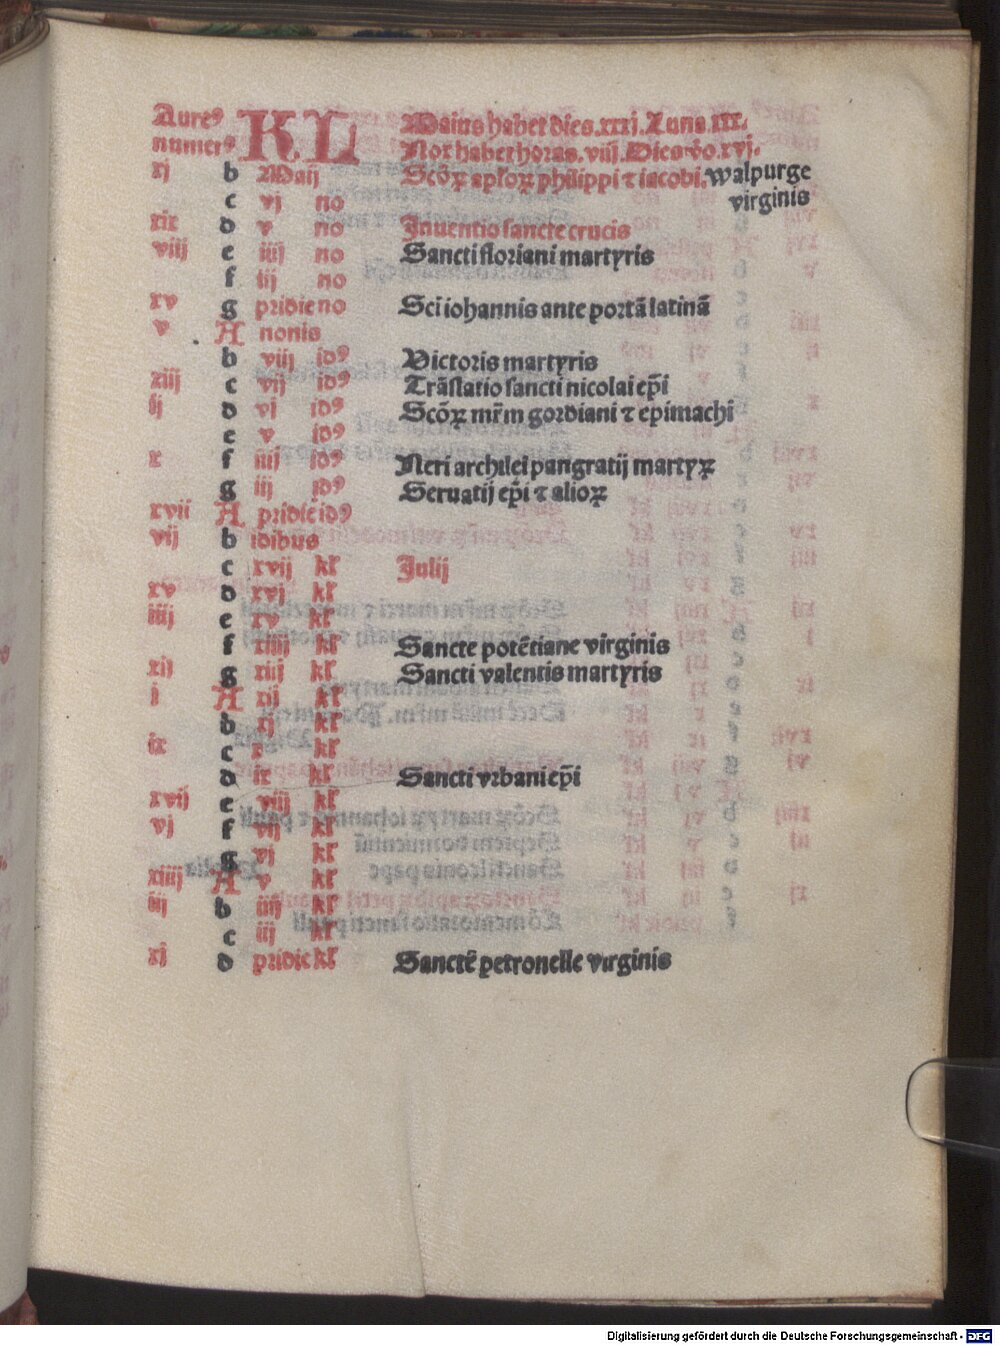 Aureꝰ KL Maius habet dies.xxxj.Luna.xxx.
numerꝰ Nox habet horas.viij.Dies vo.xvj.
xj b Maij Scōꝝ aplōꝝ philippi ⁊ iacobi.walpurge
c vj no virginis
xix d v no Inuentio sancte crucis
viij e iiij no Sancti floriani martyris
f iij no
xv g pridie no Scī iohannis ante portā latinā
v A nonis
b viij idꝰ Victoris martyris
xiij c vij idꝰ Trāslatio sancti nicolai ep̄i
ij d vj idꝰ Scōꝝ mr̄m gordiani ⁊ epimachi
e v idꝰ
x f iiij idꝰ Neri archilei pangratij martyꝝ
g iij idꝰ Seruatij ep̄i ⁊ alioꝝ
xvii A pridie idꝰ
vij b idibus
c xvij kl̄ Julij
xv d xvj kl̄
iiij e xv kl̄
f xiiij kl̄ Sancte potētiane virginis
xij g xiij kl̄ Sancti valentis martyris
j A xij kl̄
b xj kl̄
ix c x kl̄
d ix kl̄ Sancti vrbani ep̄i
xvij e viij kl̄
vj f vij kl̄
g vj kl̄
xiiij A v kl̄
iij b iiij kl̄
c iij kl̄
xj d pridie kl̄ Sanctē petronelle virginis
Digitalisierung gefördert durch die Deutsche Forschungsgemeinschaft - DFG